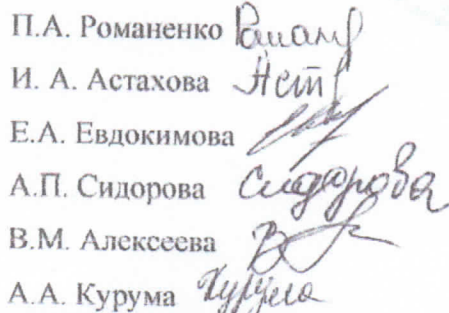 П.А. Романенко
И. А. Астахова Аст
Е.А. Евдокимова
А.П. Сидорова Сидорова
В.М. Алексеева
А.А. Курума Курума